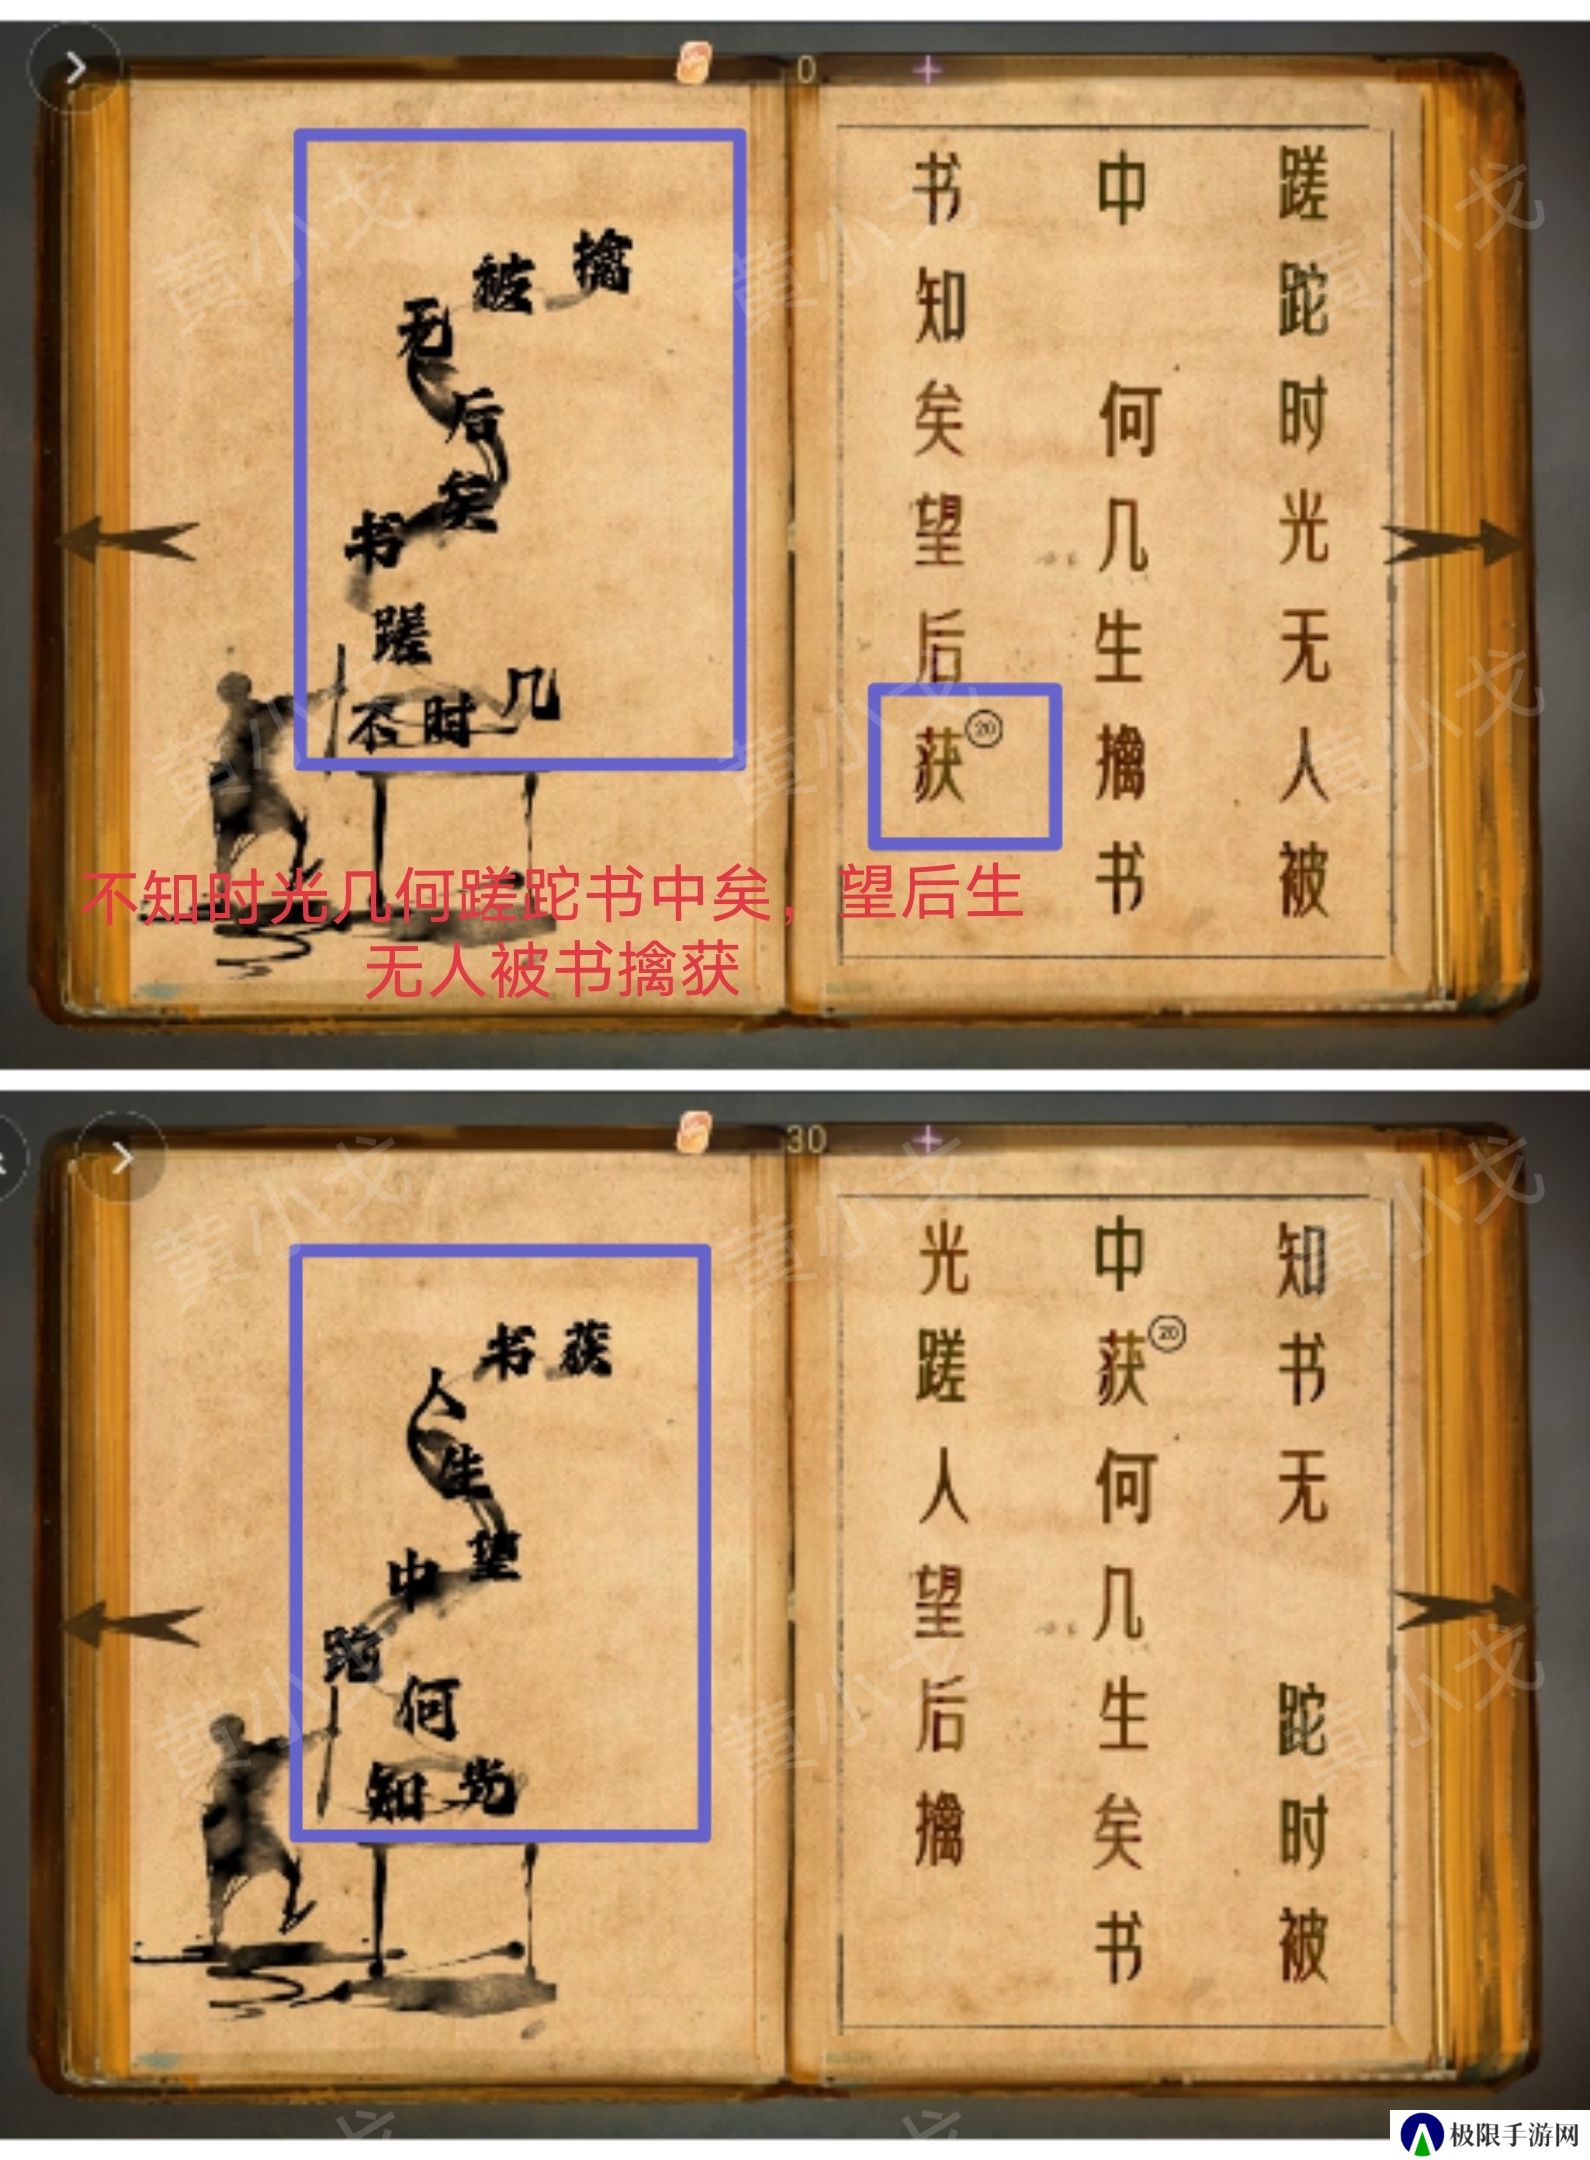 0
擒
被
无
后
矣
书
蹉
不时几
蹉跎时光无人被
中何几生擒书
书知矣望后获
20
不知时光几何蹉跎书中矣，望后生
无人被书擒获
30
书获
人
生
望
中
跎
何
知光
知书无跎时被
中获何几生矣书
20
光蹉人望后擒
黄小戈
极限手游网